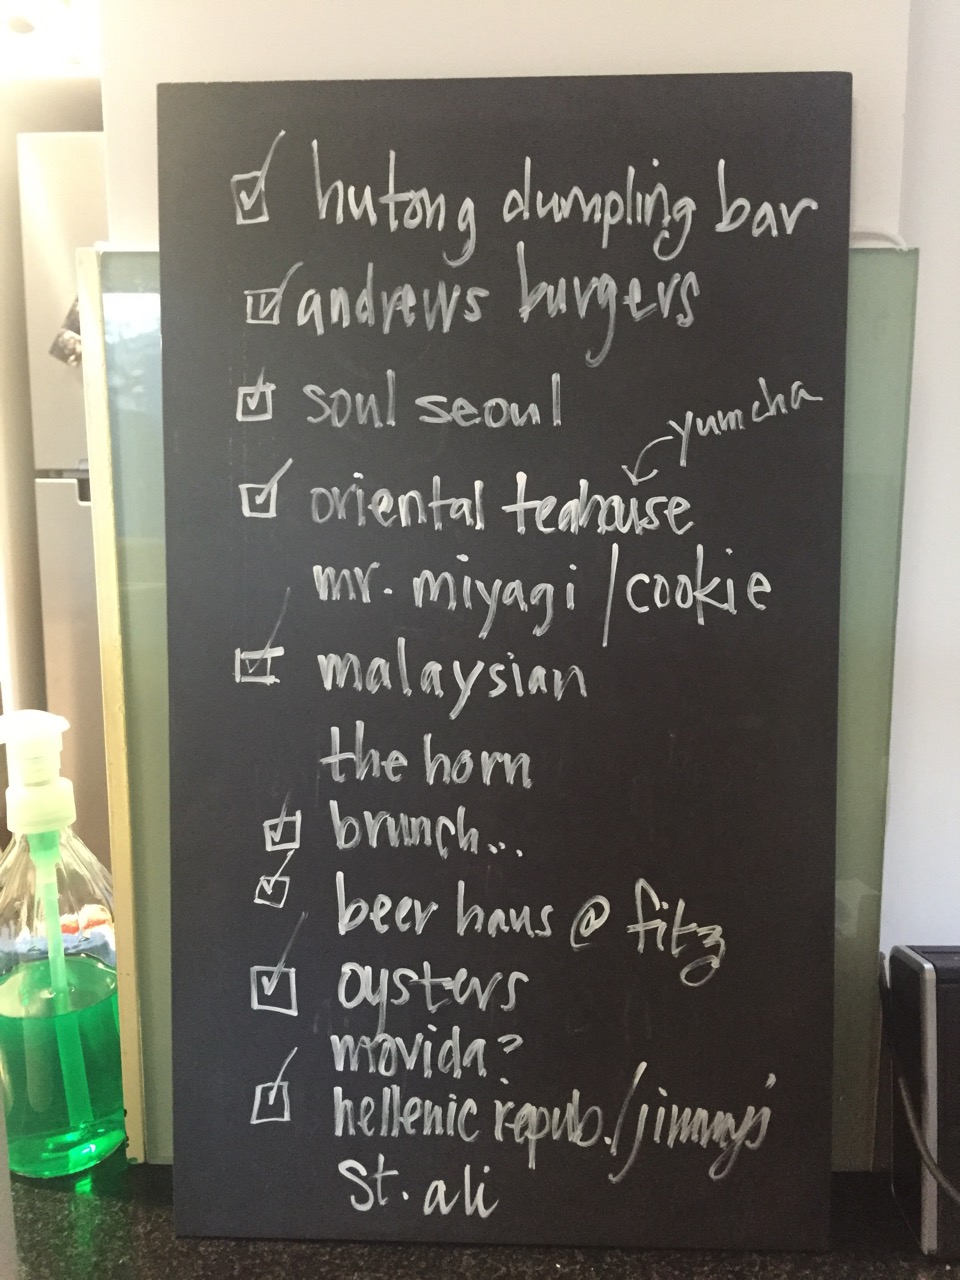 ☑ hutong dumpling bar
☑ andrews burgers
☑ soul seoul
yumcha
☑ oriental teahouse
mr. miyagi / cookie
☑ malaysian
the horn
☑ brunch...
☑ beer haus @ fitz
☑ oysters
movida?
☑ hellenic repub./jimmy's
St. ali